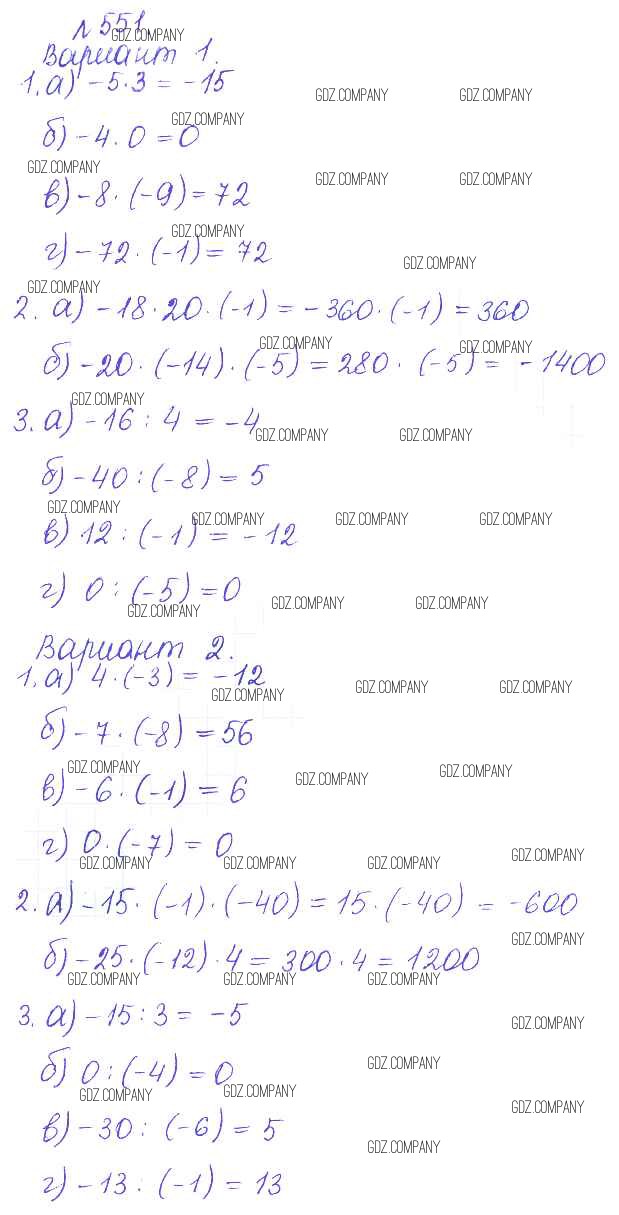 № 551.
Вариант 1.
1. а) -5·3 = -15
б) -4·0 = 0
в) -8·(-9) = 72
г) -72·(-1) = 72
2. а) -18·20·(-1) = -360·(-1) = 360
б) -20·(-14)·(-5) = 280·(-5) = -1400
3. а) -16 : 4 = -4
б) -40 : (-8) = 5
в) 12 : (-1) = -12
г) 0 : (-5) = 0
Вариант 2.
1. а) 4·(-3) = -12
б) -7·(-8) = 56
в) -6·(-1) = 6
г) 0·(-7) = 0
2. а) -15·(-1)·(-40) = 15·(-40) = -600
б) -25·(-12)·4 = 300·4 = 1200
3. а) -15 : 3 = -5
б) 0 : (-4) = 0
в) -30 : (-6) = 5
г) -13 : (-1) = 13
GDZ.COMPANY